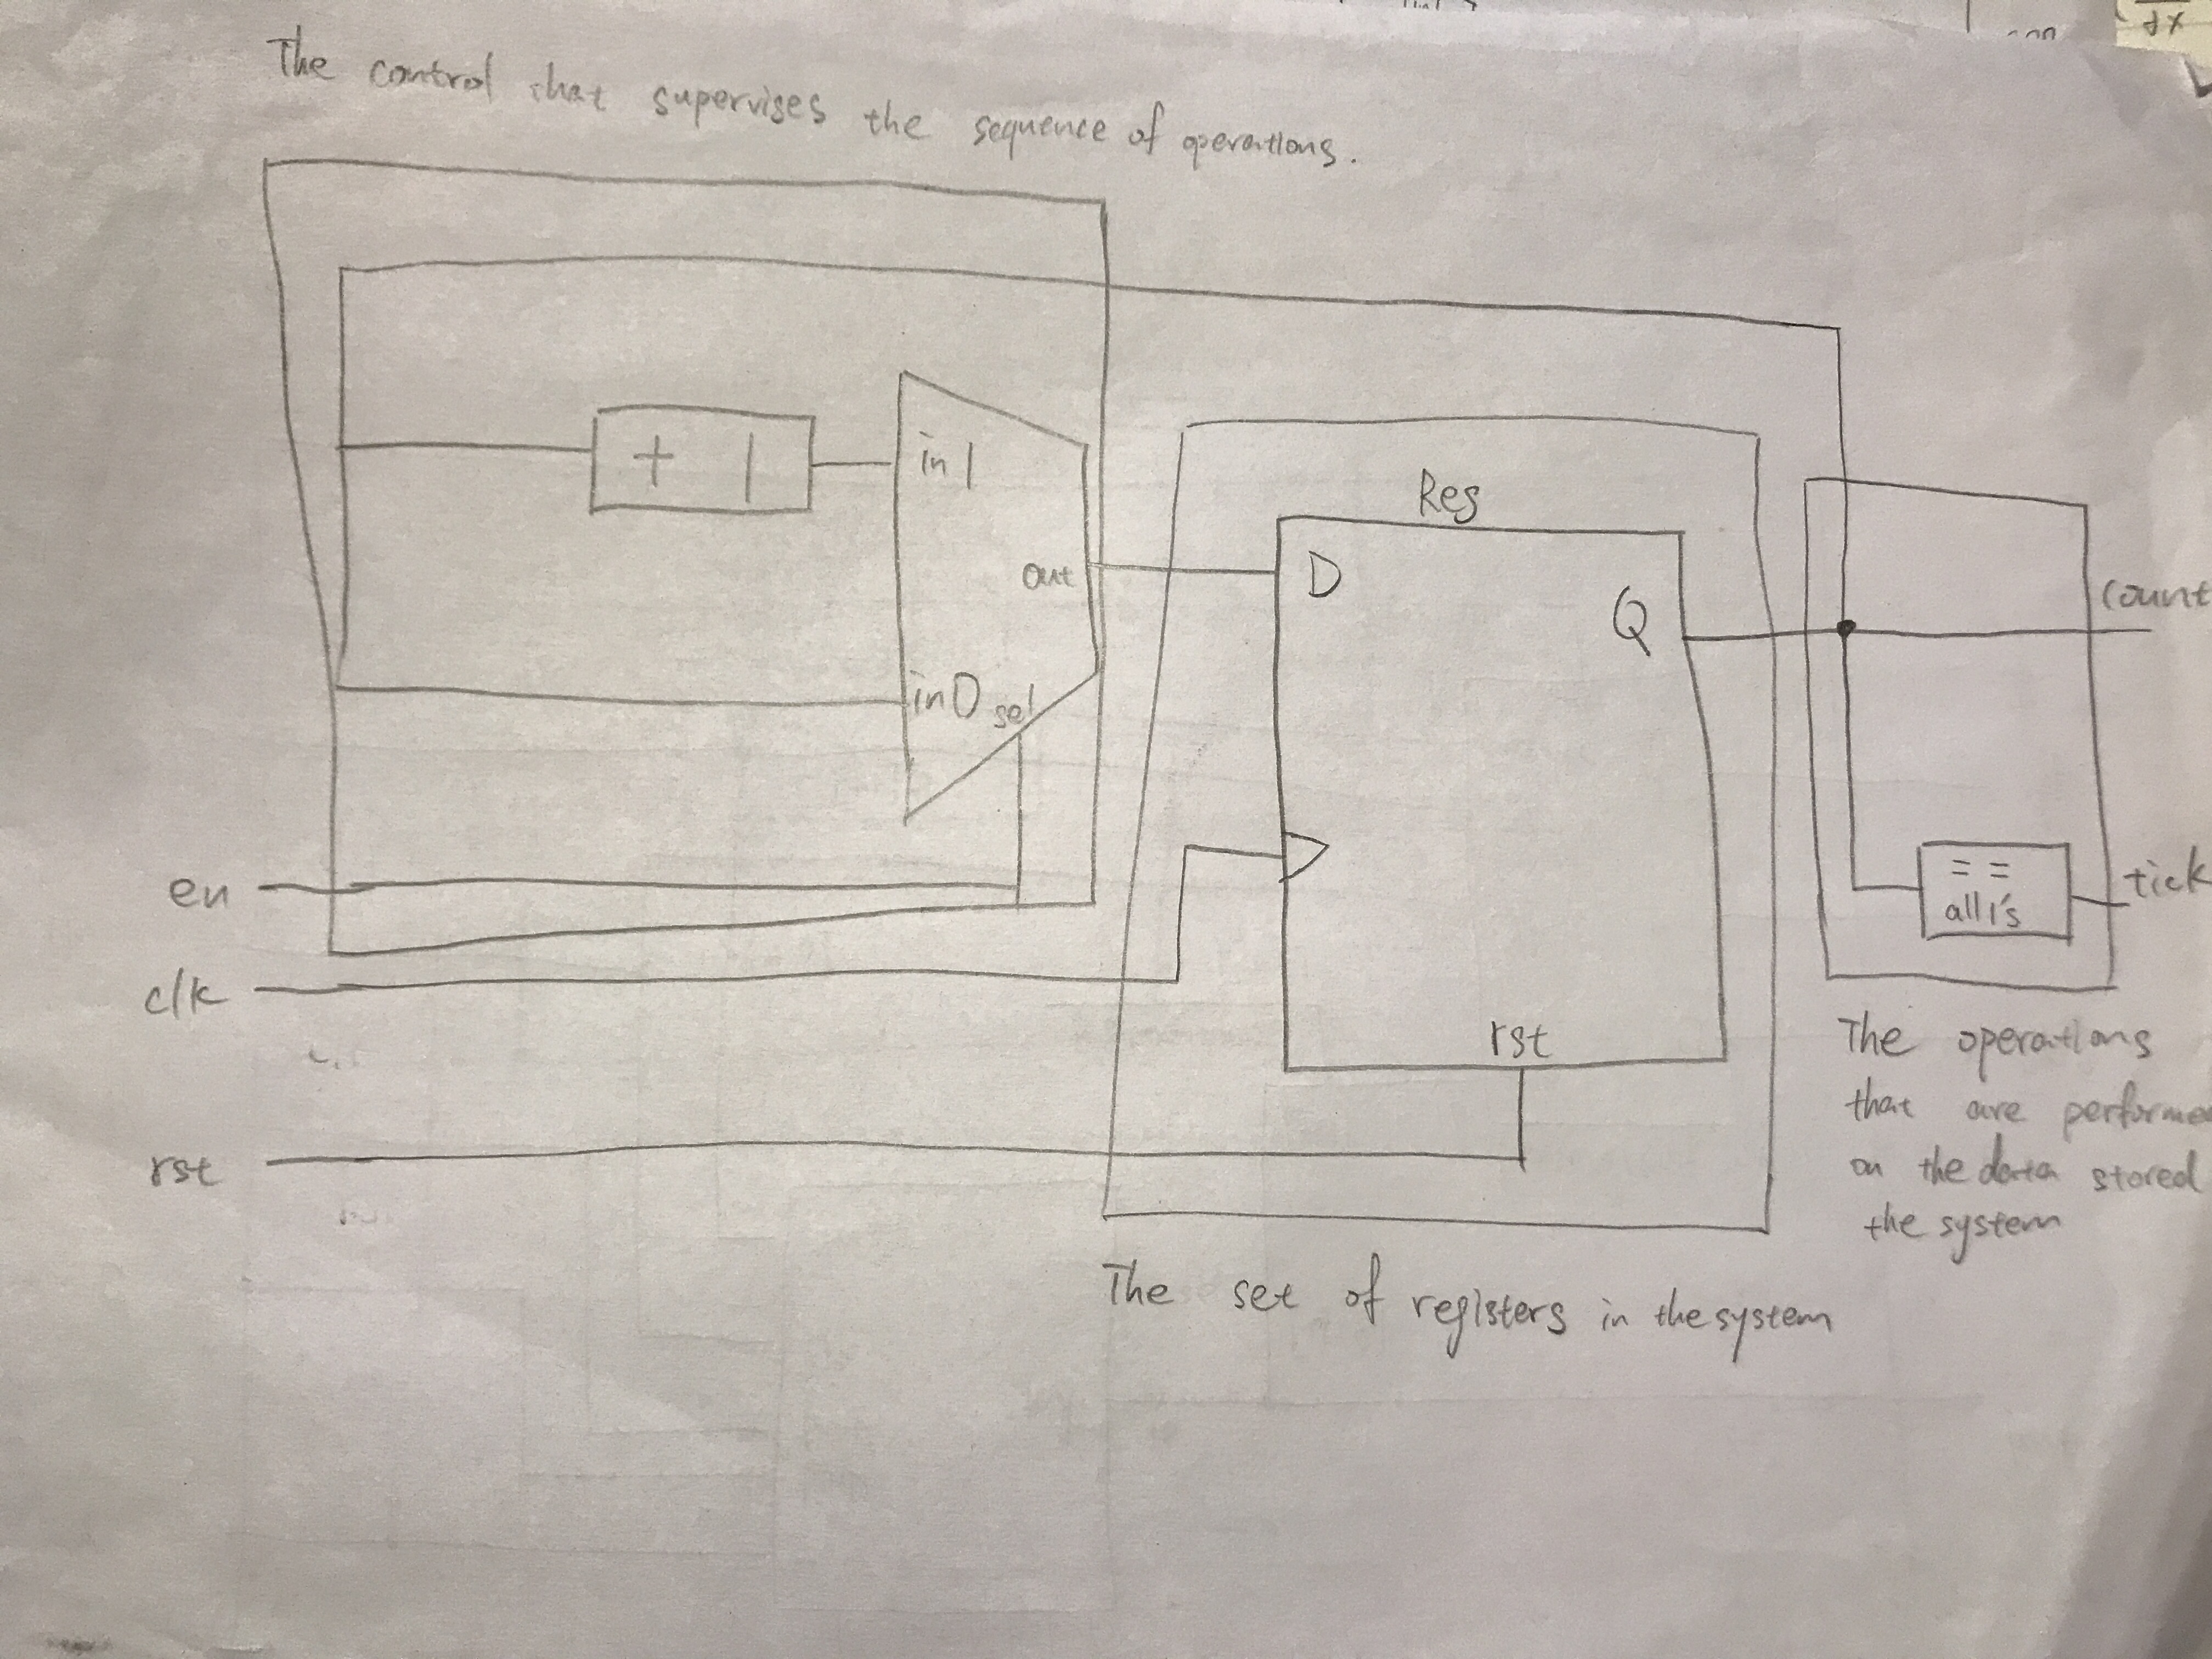 The control that supervises the sequence of operations.
+ 1
in1
out
in0
sel
Reg
D
Q
rst
count
== 
all 1's
tick
en
clk
rst
The operations
that are performed
on the data stored
the system
The set of registers in the system